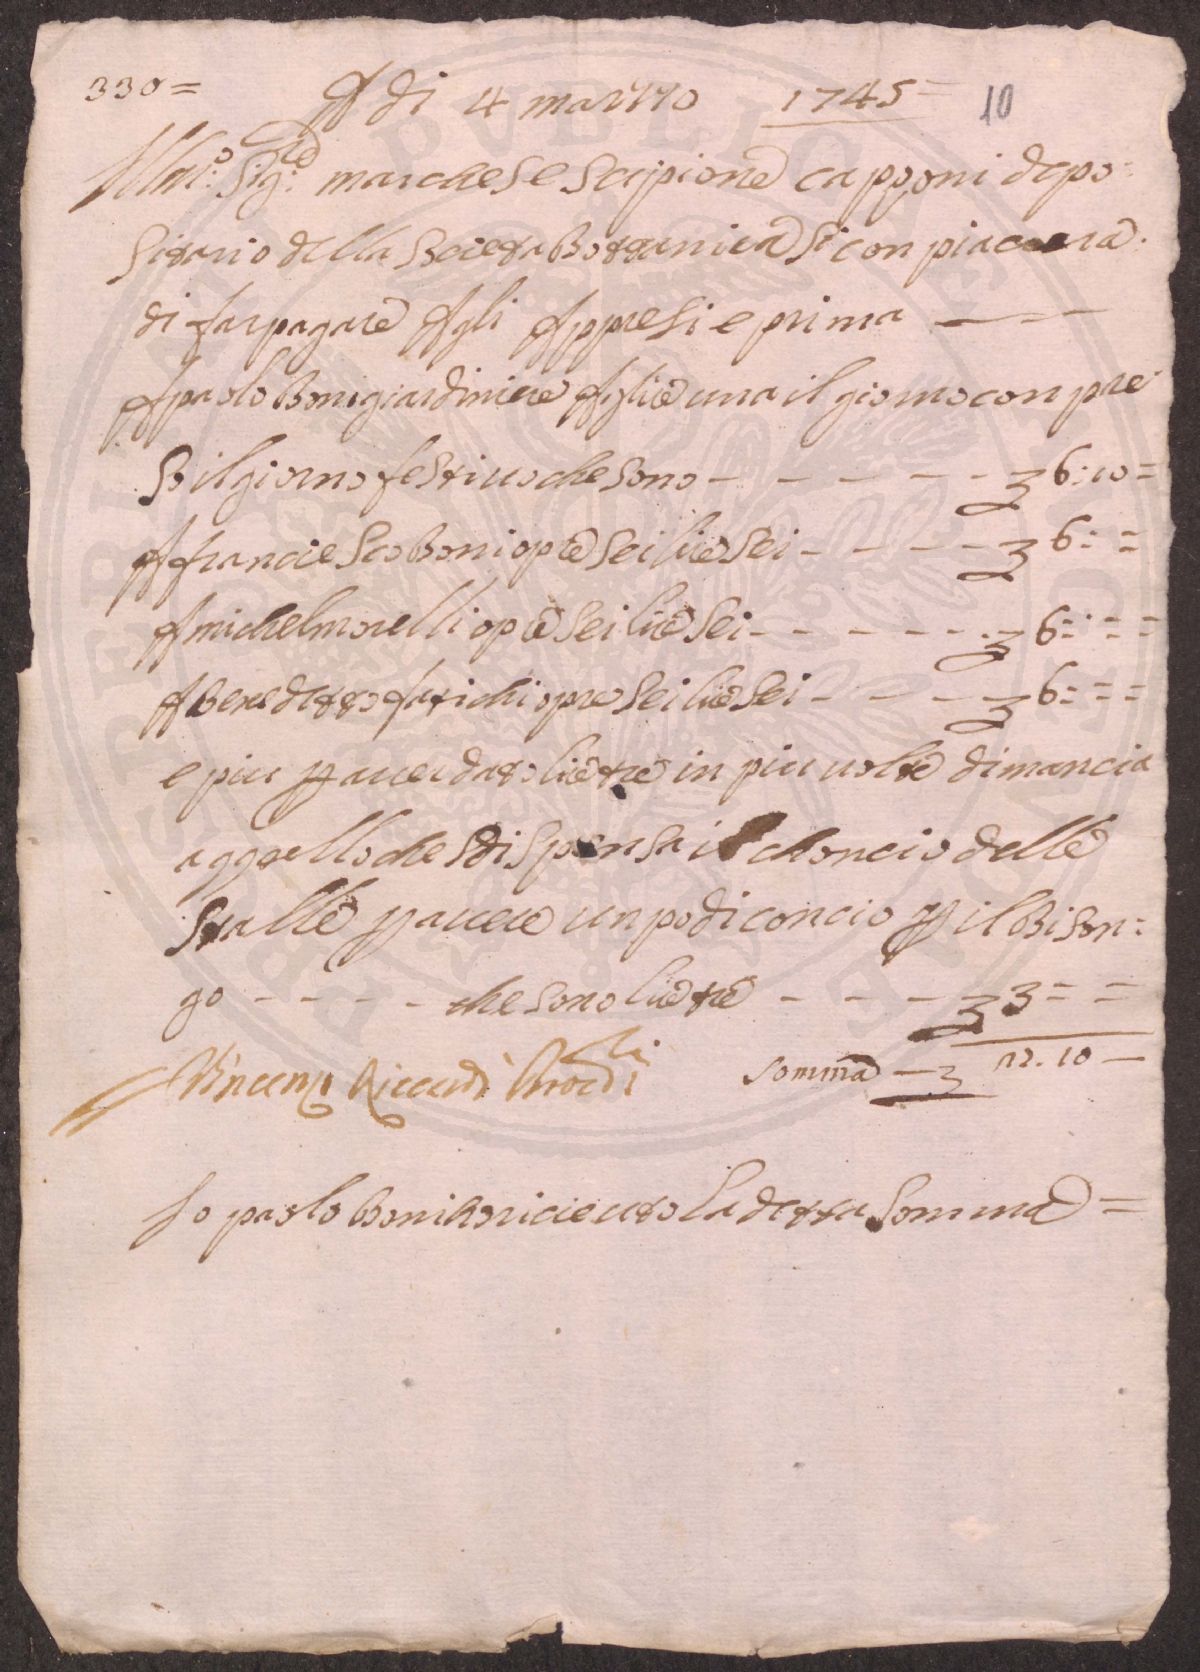 330= A di 4 marzzo 1745= 10
Illmo: Sigre: marchese Scipione capponi depo=
sitario della Societa Bottanica Si con piacera
di far pagare Agli Appresi e prima
A paolo Boni giardiniere A glire una il giorno con pre
So il giorno festivo che Sono - - - - - £ 6:10=
A francieSco Boni opre Sei lire Sei - - - - £ 6: =
A michel morelli opre Sei lire Sei - - - - - £ 6= = =
A Benedetto fatichi opre Sei lire Sei - - - - £ 6: = =
e piu p aver dato lire tre in piu volte di mancia
a qquello che diSpensa il choncio delle
Stalle p avere un po di concio p il Bison=
go - - - - che sono lire tre - - - £ 3= =
Somma - £ 21. 10 -
Vincenzo Riccardi
Io paolo Boni ho ricieuto La detta Somma =